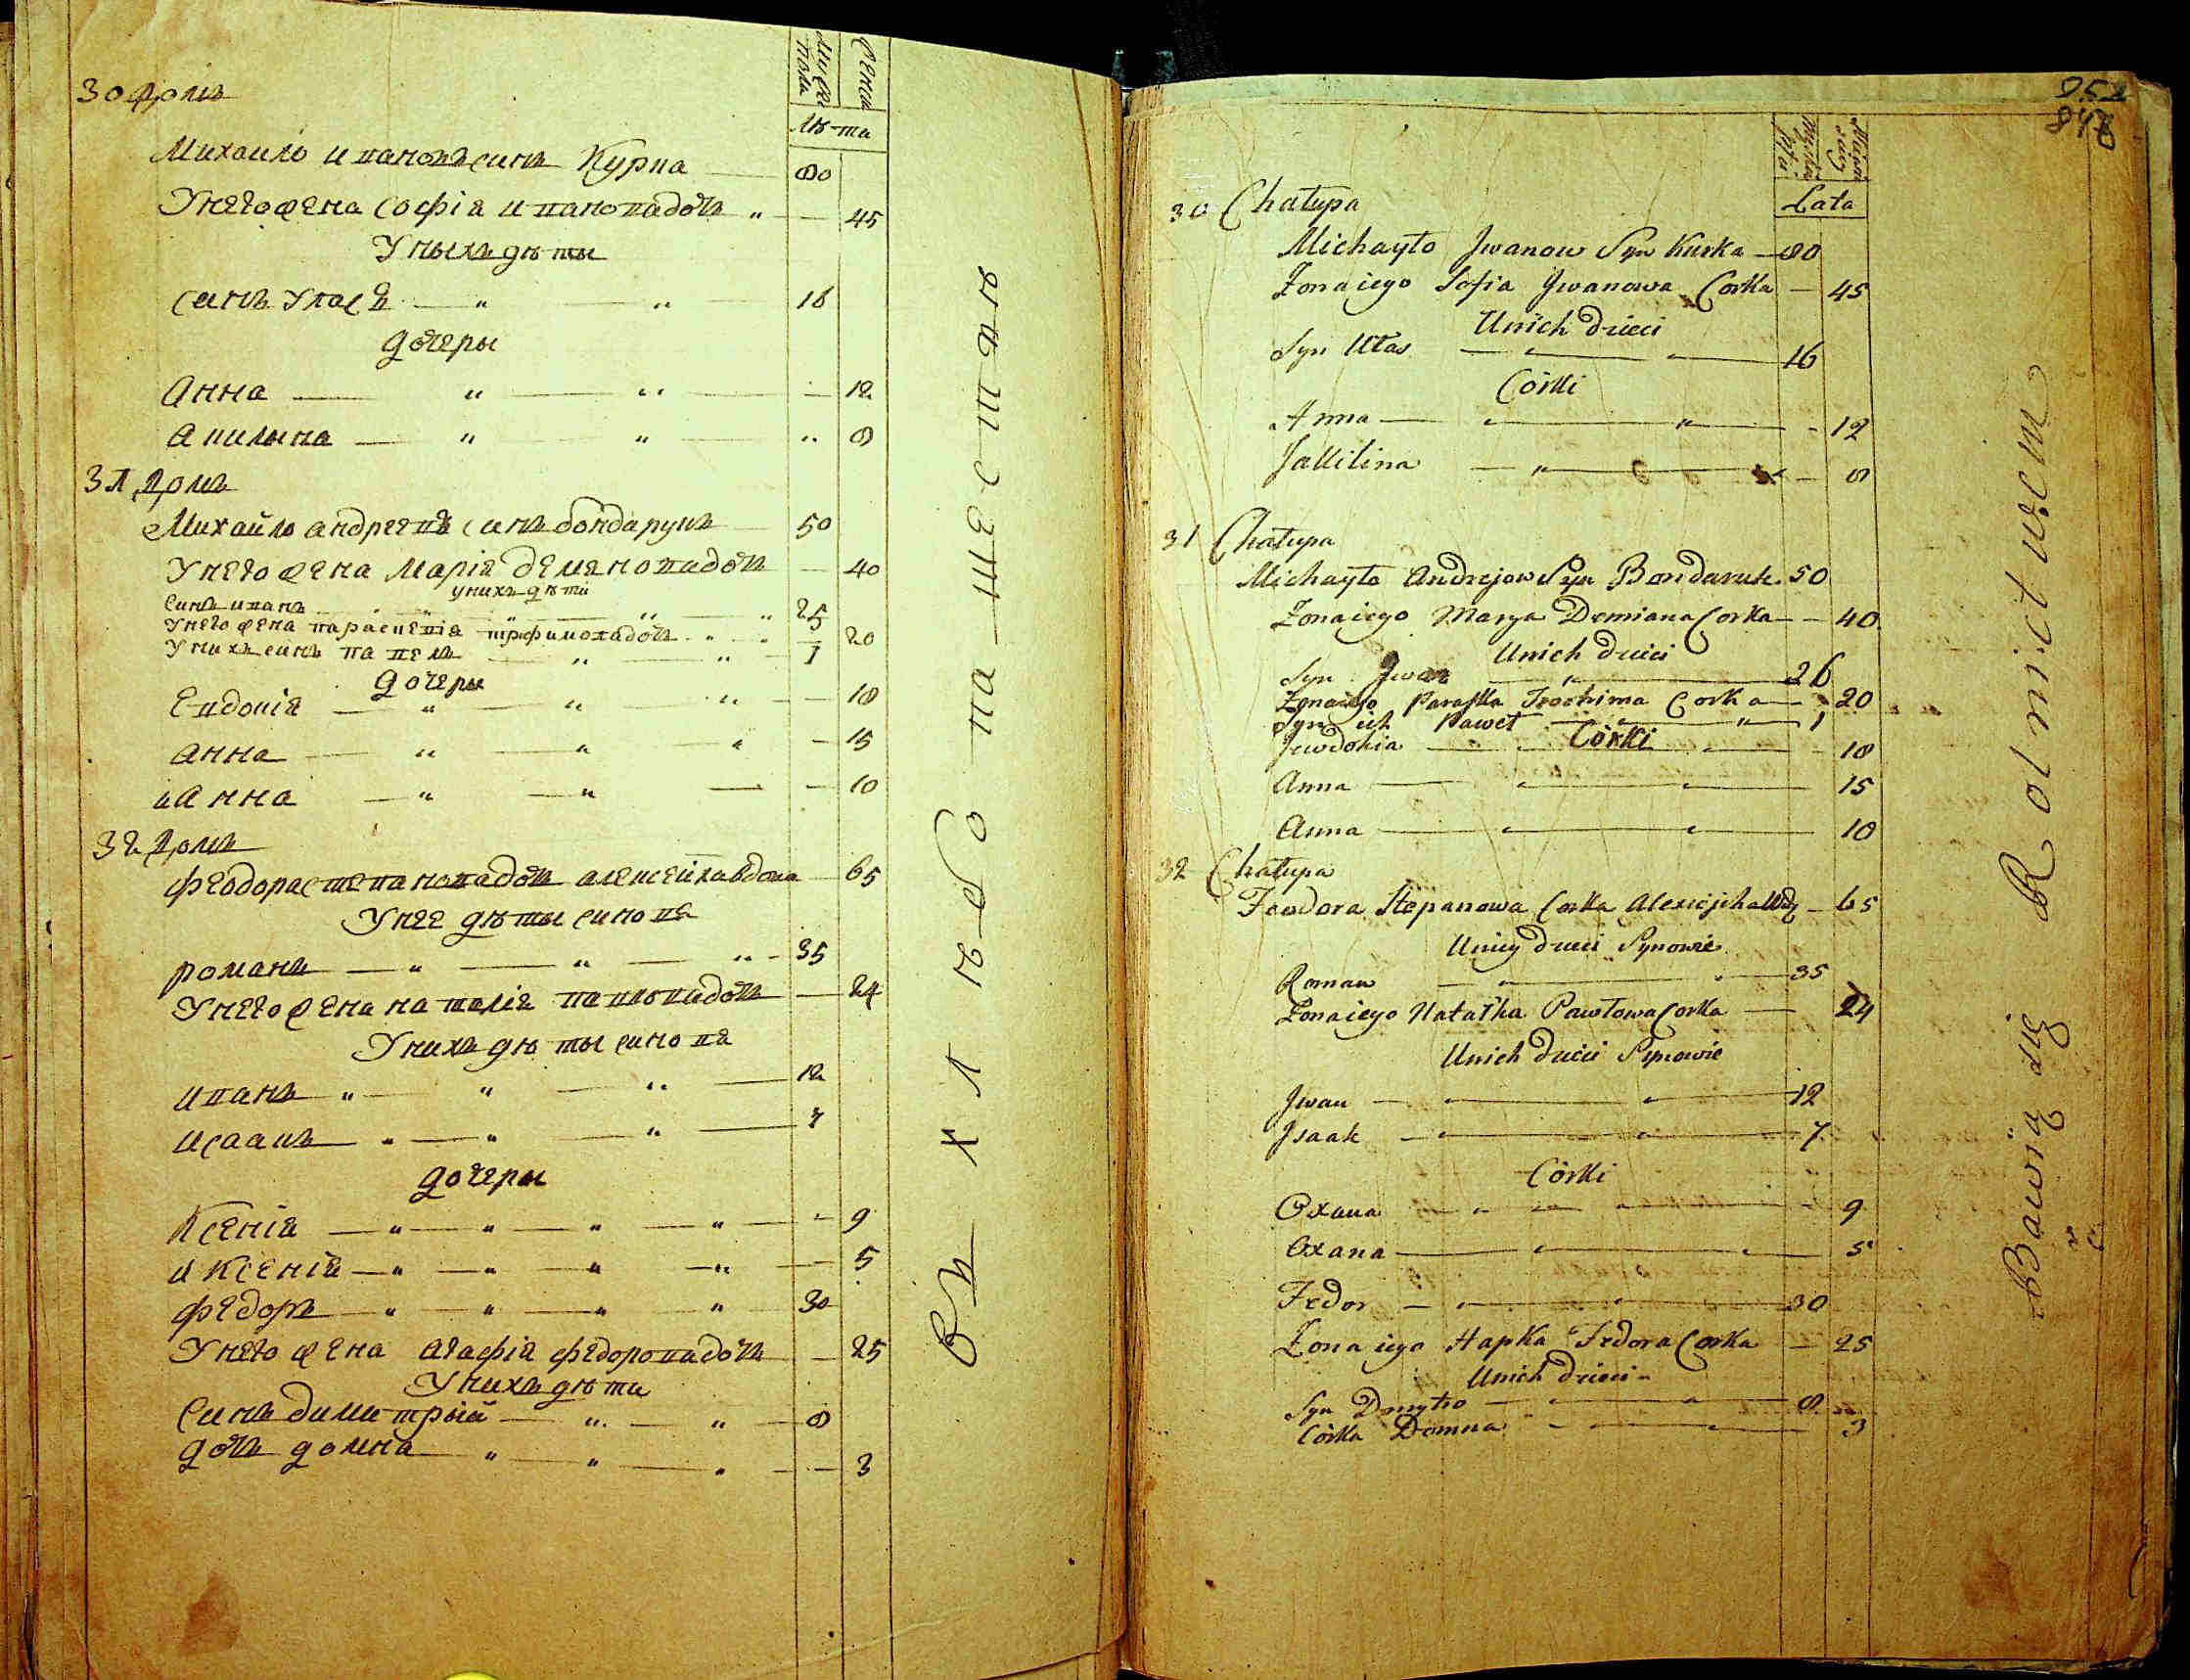 мужеска пола
женска
лѣта
30 домъ
Михаило ивановъ синъ Курка 80
У него жена софія ивановадочъ " — 45
У ныхъ дѣты
синъ Уласъ — " — " 16
дочеры
Анна — " — " — 12
Акилына — " — " — " 8
31 домъ
Михайло андреевъ синъ бондарукъ 50
У него жена Марія демяновадочъ — 40
у нихъ дѣти
синъ иванъ — " — " — " 25
У него жена параскевія трофимовадочъ " — " — 20
У нихъ синъ павелъ — " — " 1
дочеры
Евдокія — " — " — " — 18
анна — " — " — " — 15
и анна — " — " — 10
32 домъ
феодора степановадочъ алексейхавдова 65
У нее дѣты синова
романъ — " — " — " 35
У него жена наталія павловадочъ — 24
У нихъ дѣты синова
иванъ " — " — " 12
исаакъ — " — " — " — 7
дочеры
Ксенія — " — " — " — " — 9
и Ксенія — " — " — " — " — 5
федоръ — " — " — " — " 30
У него жена агафія федоровадочъ — 25
У нихъ дѣти
синъ димитрый — " — " — 8
дочъ домна " — " — " — 3
В ы хлѣбопашествѣ
852
848
Lata
30 Chałupa
Michayło Jwanow Syn Kurka — 80
Żona iego Sofia Jwanowa Corka — 45
Unich dzieci
Syn Ułas — " — " 16
Córki
Anna — " — " — 12
Jakilina — " — " — 8
31 Chałupa
Michayło Andrejow Syn Bondaruk 50
Żona iego Marya Demiana Corka — 40
Unich dzieci
Syn Jwan — " — 26
Żona iego Paraska Trochima Corka — 20
Syn ich Paweł — " — " 1
Córki
Jewdokia — " — 18
Anna — " — " — 15
Anna — " — " — 10
32 Chałupa
Feodora Stepanowa Corka Alexiejcha Wdo — 65
Uniey dzieci Synowie
Roman — " — " — 35
Żona iego Natałka Pawłowa Corka — 24
Unich dzieci Synowie
Jwan — " — " — 12
Jsaak — " — " — 7
Córki
Oxana — " — " — 9
Oxana — " — " — 5
Fedor — " — " — 30
Żona iego Hapka Fedora Corka — 25
Unich dzieci
Syn Dmytro — " — " — 8
Córka Domna — " — " — 3
Bawią się Rolnictwem